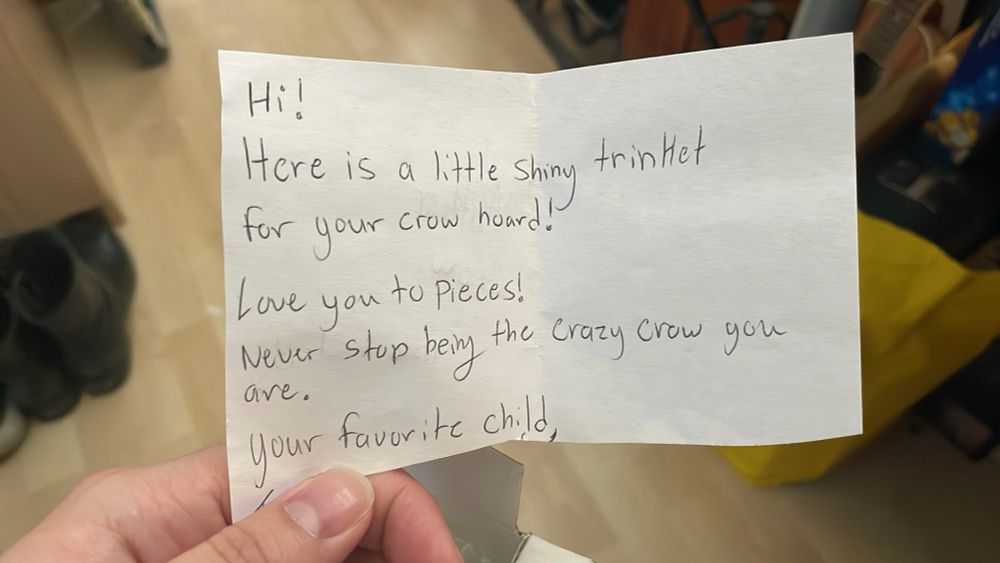 Hi!
Here is a little shiny trinket
for your crow hoard!
Love you to pieces!
Never stop being the crazy crow you
are.
your favorite child,